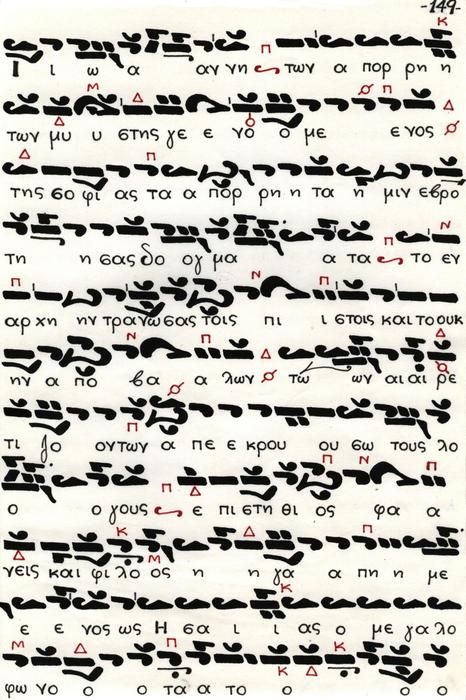 -149-
Ι ι ω α αν νη των α πορ ρη η
των μυ υ στης γε ε νο ο με ε νος
της σο φι ας τα α πορ ρη η τα η μιν εβρο
τη η σας δο ογ μα α τα το εν
αρ χη ην τρα νω σας τοις πι ι στοις και το ουκ
ην α πο βα α λων τω ων αι αι ρε
τι ζο ον των α πε ε κρου ου σω τους λο
ο ο γους ε πι στη θι ος φα α
νεις και φι λο ος η η γα α πη η με
ε ε νος ως Η σα ι ι ας ο με γα λο
φω νο ο ο τα α το ο ο ο ο